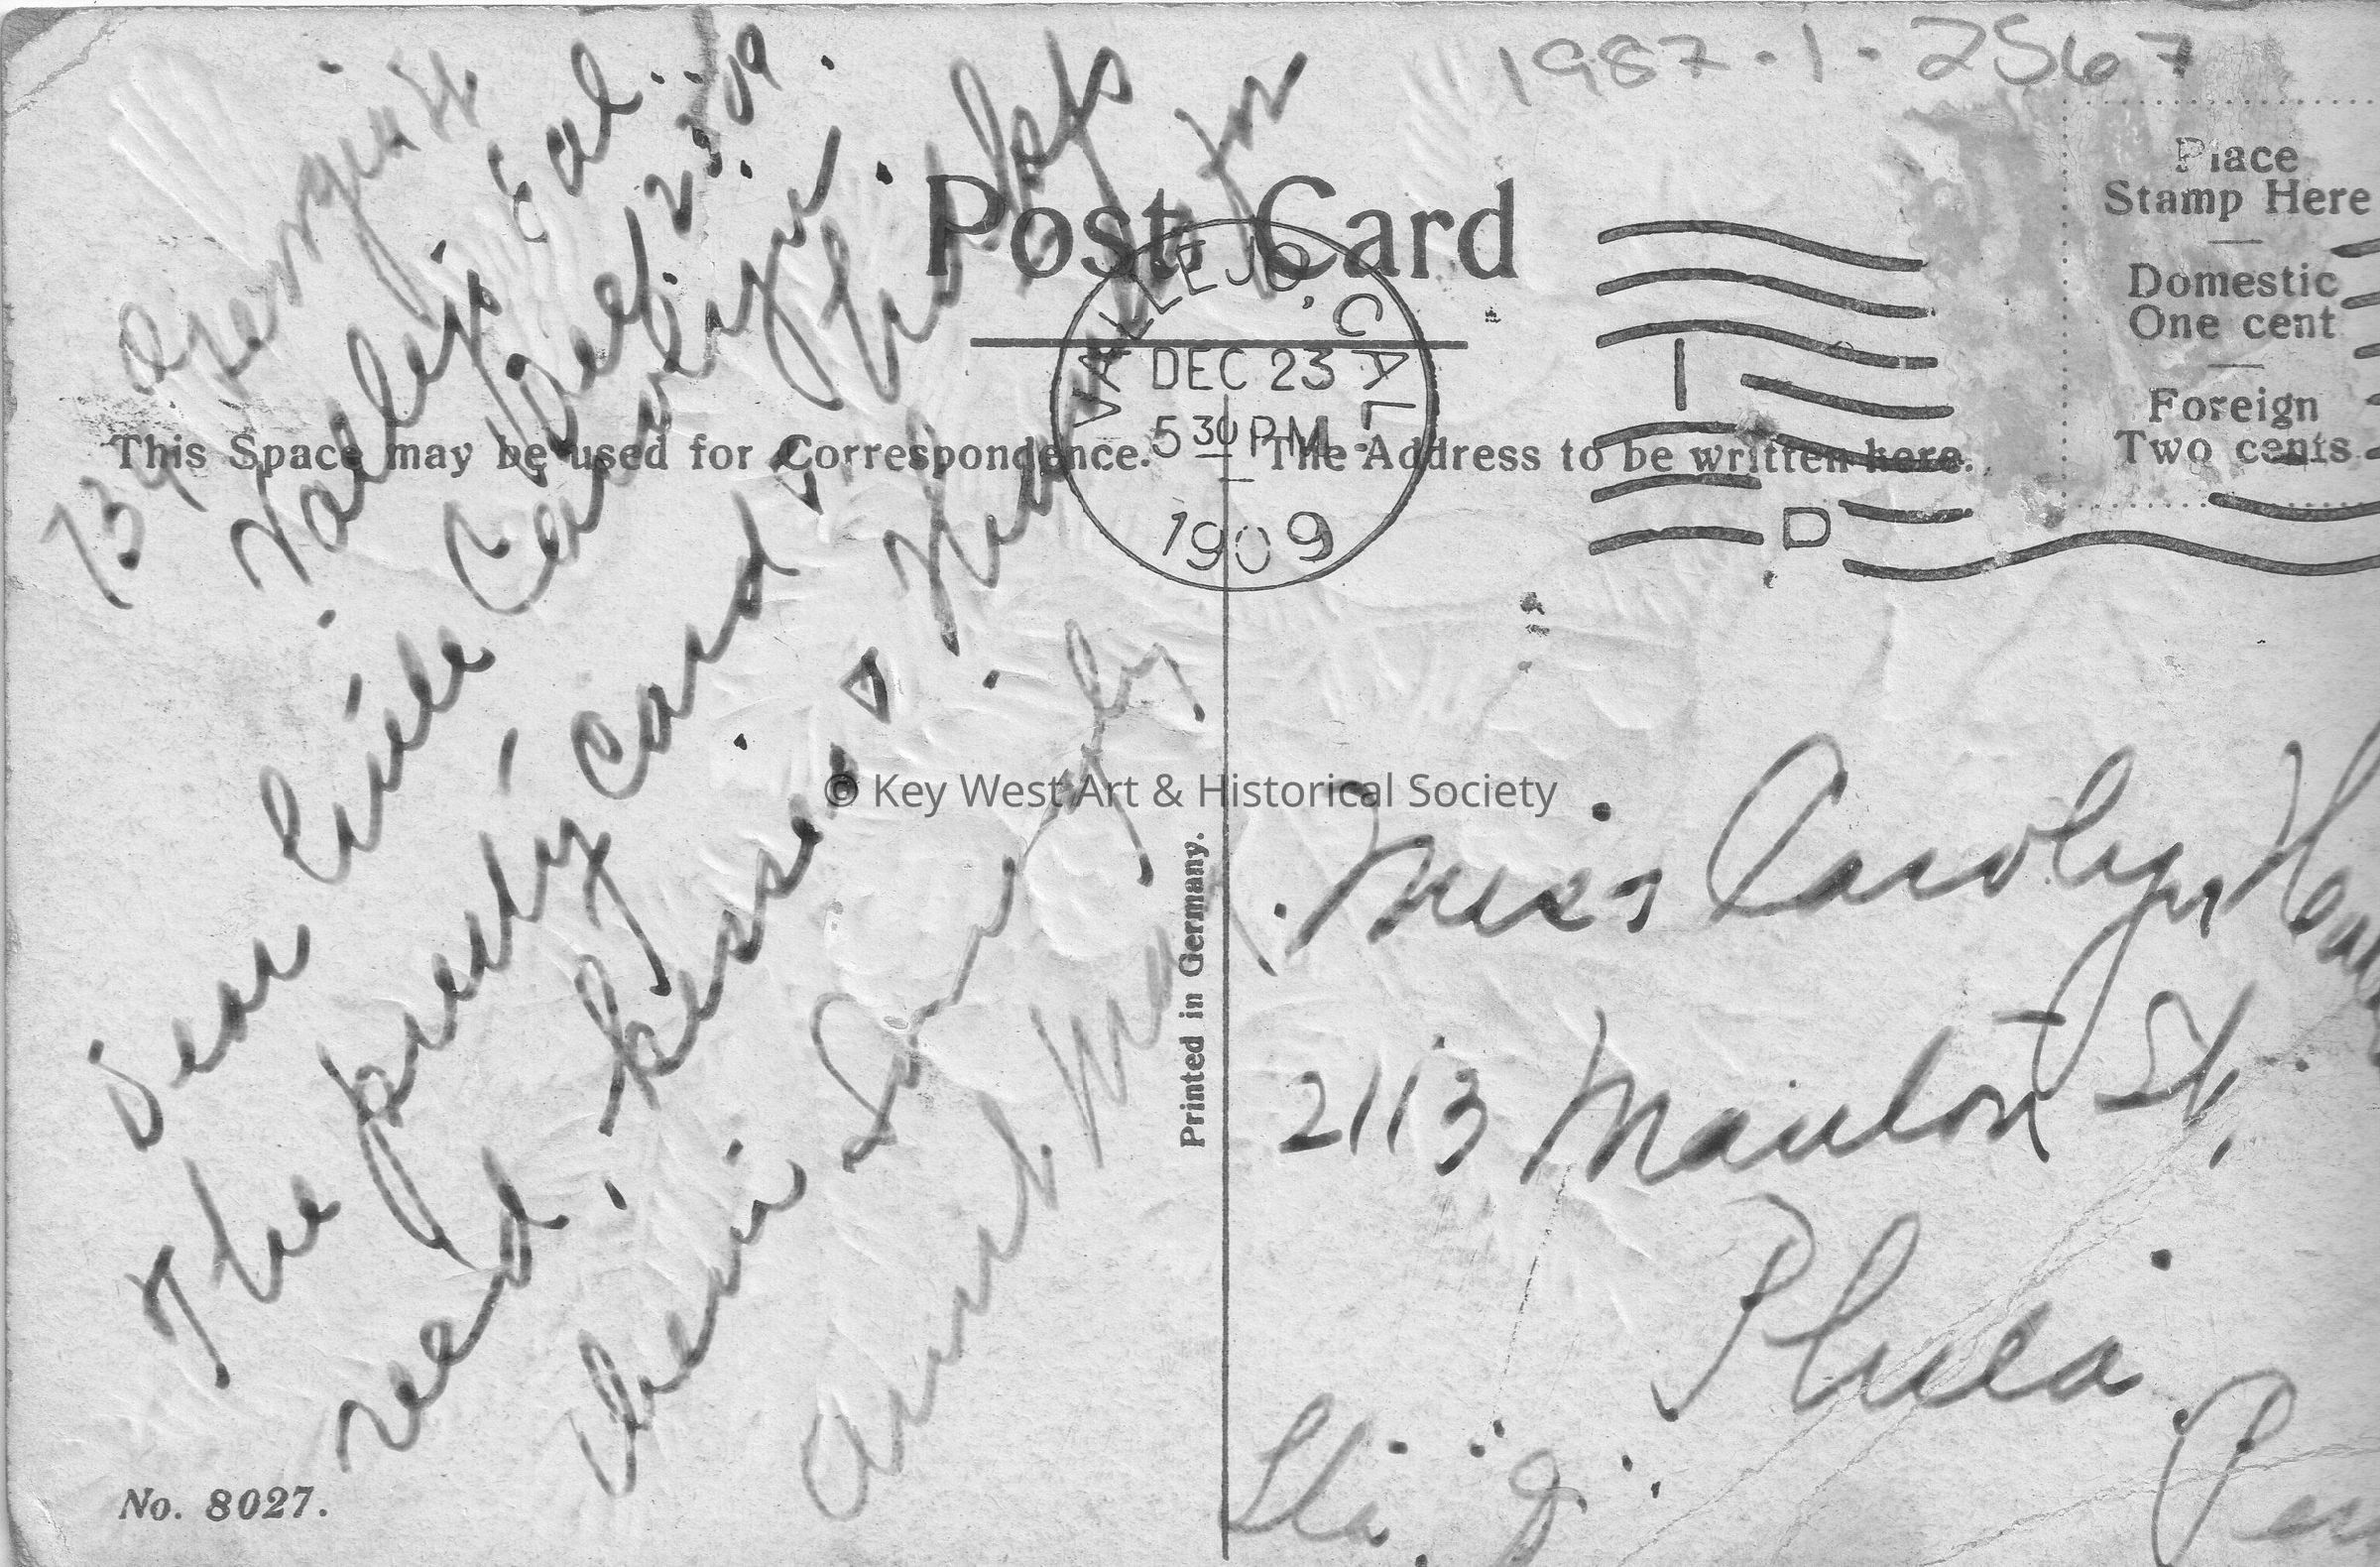 1987.1.2567
Post Card
Place
Stamp Here
Domestic
One cent
Foreign
Two cents
VALLEJO, CAL.
DEC 23
5 30 P.M.
1909
I
D
This Space may be used for Correspondence.
The Address to be written here.
734 Georgia St
Vallejo Cal.
Dec. 23 09
Dear little Carolyn.
The pretty card
recd. kisses &
Aunt
Printed in Germany.
No. 8027.
Miss Carolyn
2113 Manton St,
Phila
Sta. J.
© Key West Art & Historical Society